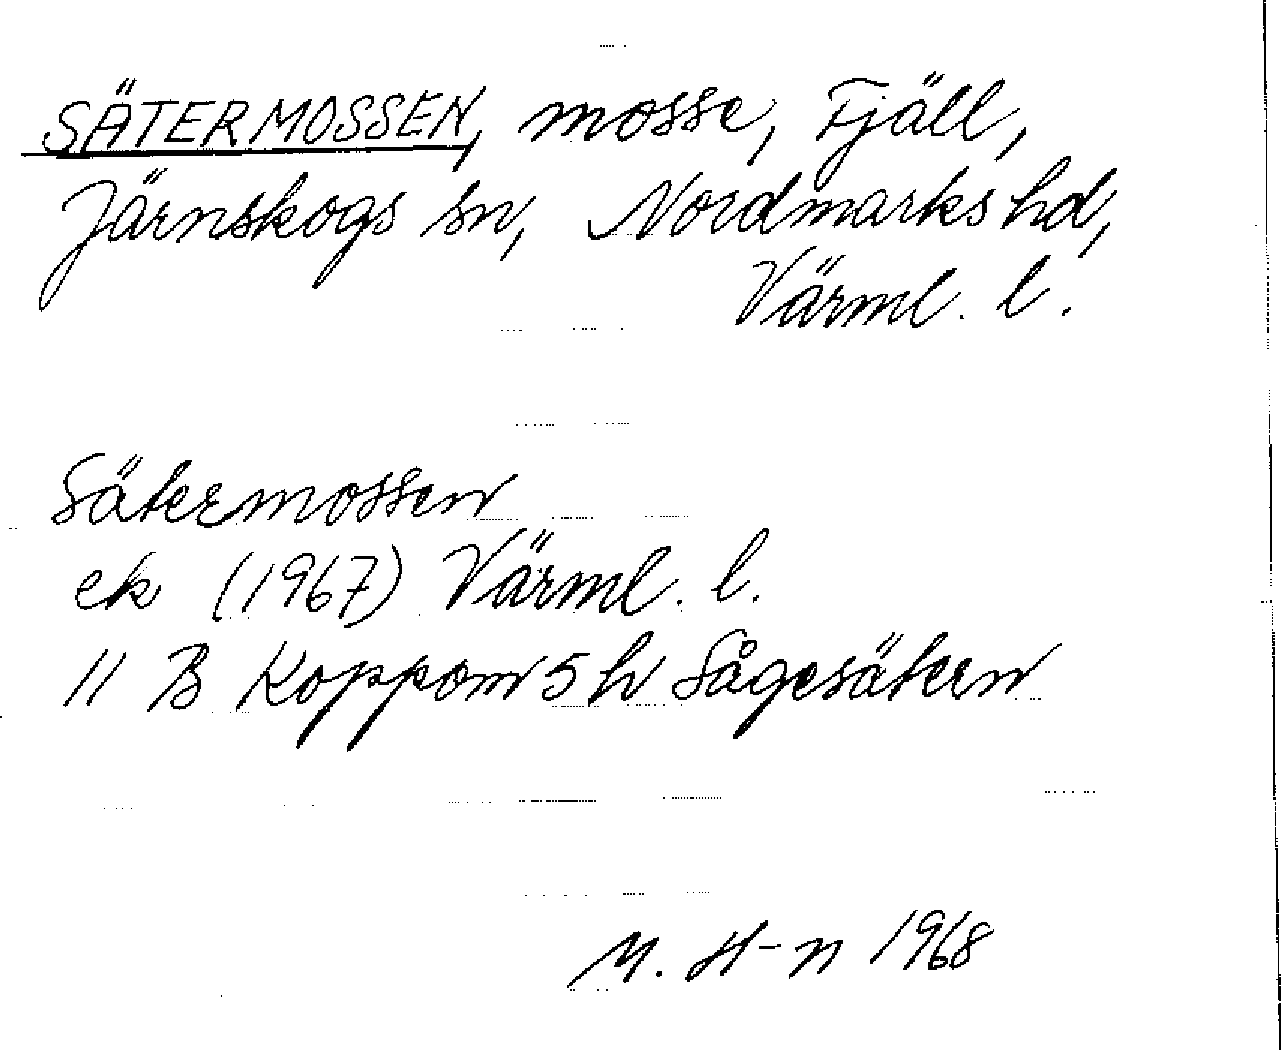 SÄTERMOSSEN, mosse, Fjäll,
Järnskogs sn, Nordmarks hd,
Värml. l.
Sätermossen
ek (1967) Värml. l.
11 B Koppom 5 h Sågesätern
M. H-n 1968